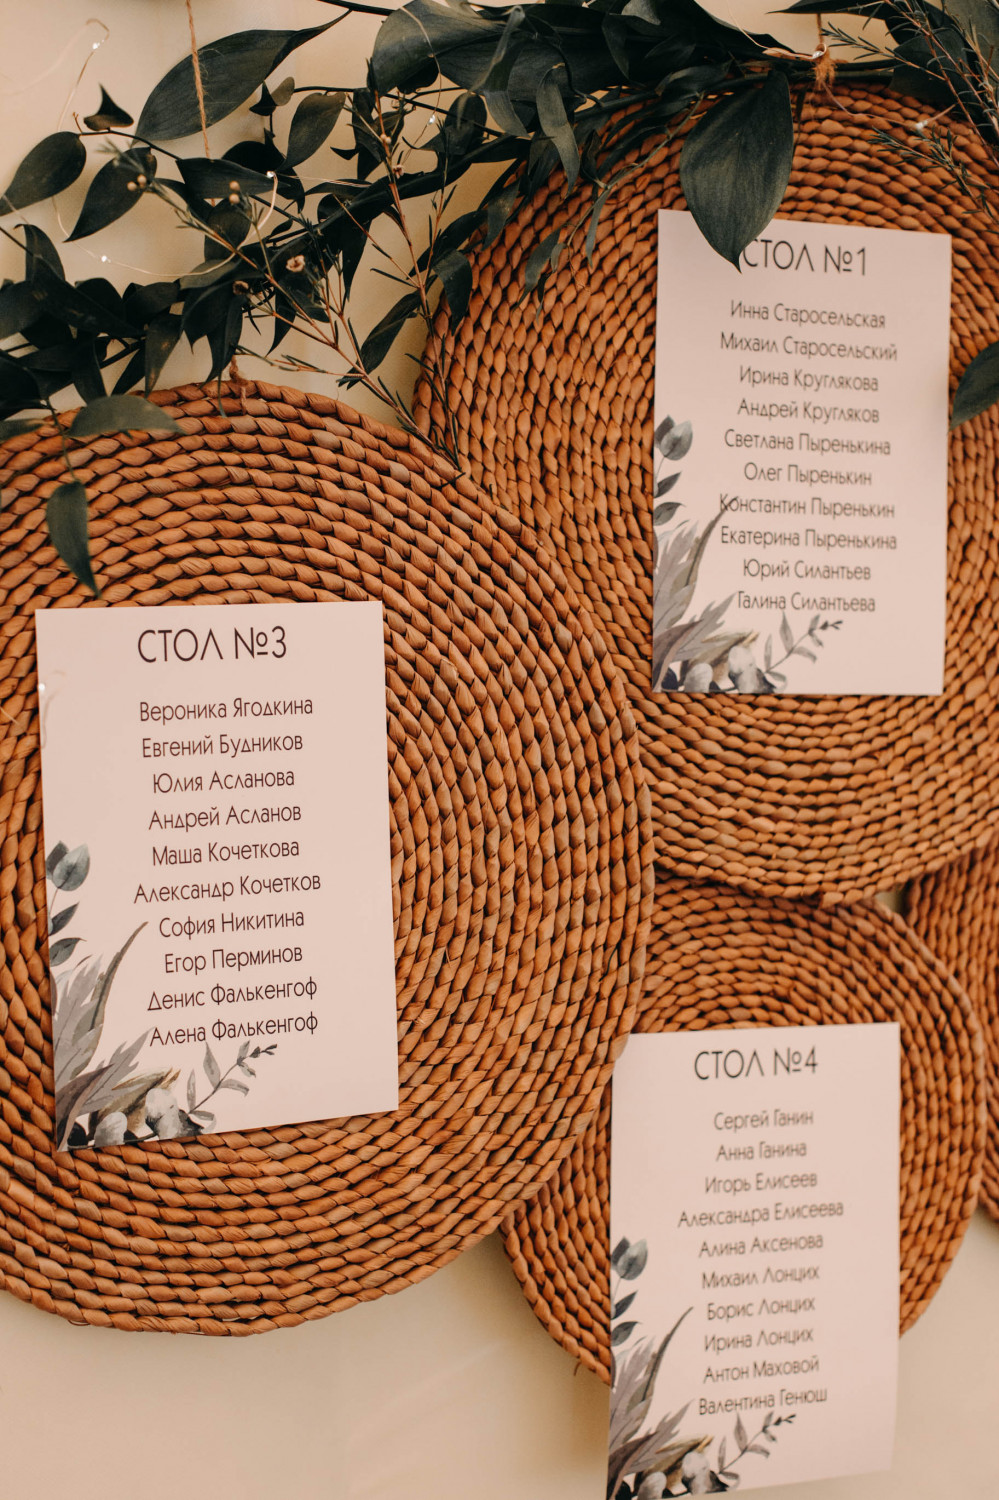 СТОЛ №1
Инна Старосельская
Михаил Старосельский
Ирина Круглякова
Андрей Кругляков
Светлана Пыренькина
Олег Пыренькин
Константин Пыренькин
Екатерина Пыренькина
Юрий Силантьев
Галина Силантьева
СТОЛ №3
Вероника Ягодкина
Евгений Будников
Юлия Асланова
Андрей Асланов
Маша Кочеткова
Александр Кочетков
София Никитина
Егор Перминов
Денис Фалькенгоф
Алена Фалькенгоф
СТОЛ №4
Сергей Ганин
Анна Ганина
Игорь Елисеев
Александра Елисеева
Алина Аксенова
Михаил Лонцих
Борис Лонцих
Ирина Лонцих
Антон Маховой
Валентина Генюш